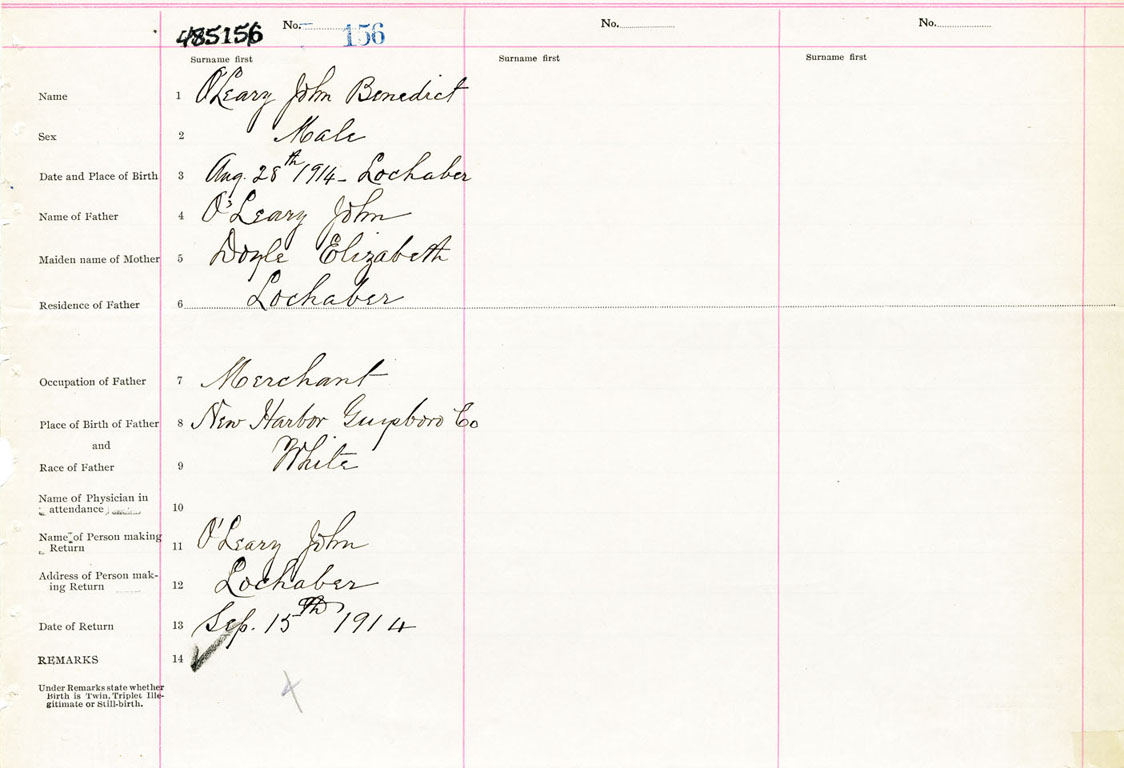 485156 No. 156 No. No.
Surname first Surname first Surname first
Name 1 O'Leary John Benedict
Sex 2 Male
Date and Place of Birth 3 Aug. 28th 1914 - Lochaber
Name of Father 4 O'Leary John
Maiden name of Mother 5 Doyle Elizabeth
Residence of Father 6 Lochaber
Occupation of Father 7 Merchant
Place of Birth of Father 8 New Harbor Guysboro Co
and
Race of Father 9 White
Name of Physician in
attendance 10
Name of Person making
Return 11 O'Leary John
Address of Person mak-
ing Return 12 Lochaber
Date of Return 13 Sep. 15th 1914
REMARKS 14
Under Remarks state whether
Birth is Twin, Triplet Ille-
gitimate or Still-birth.